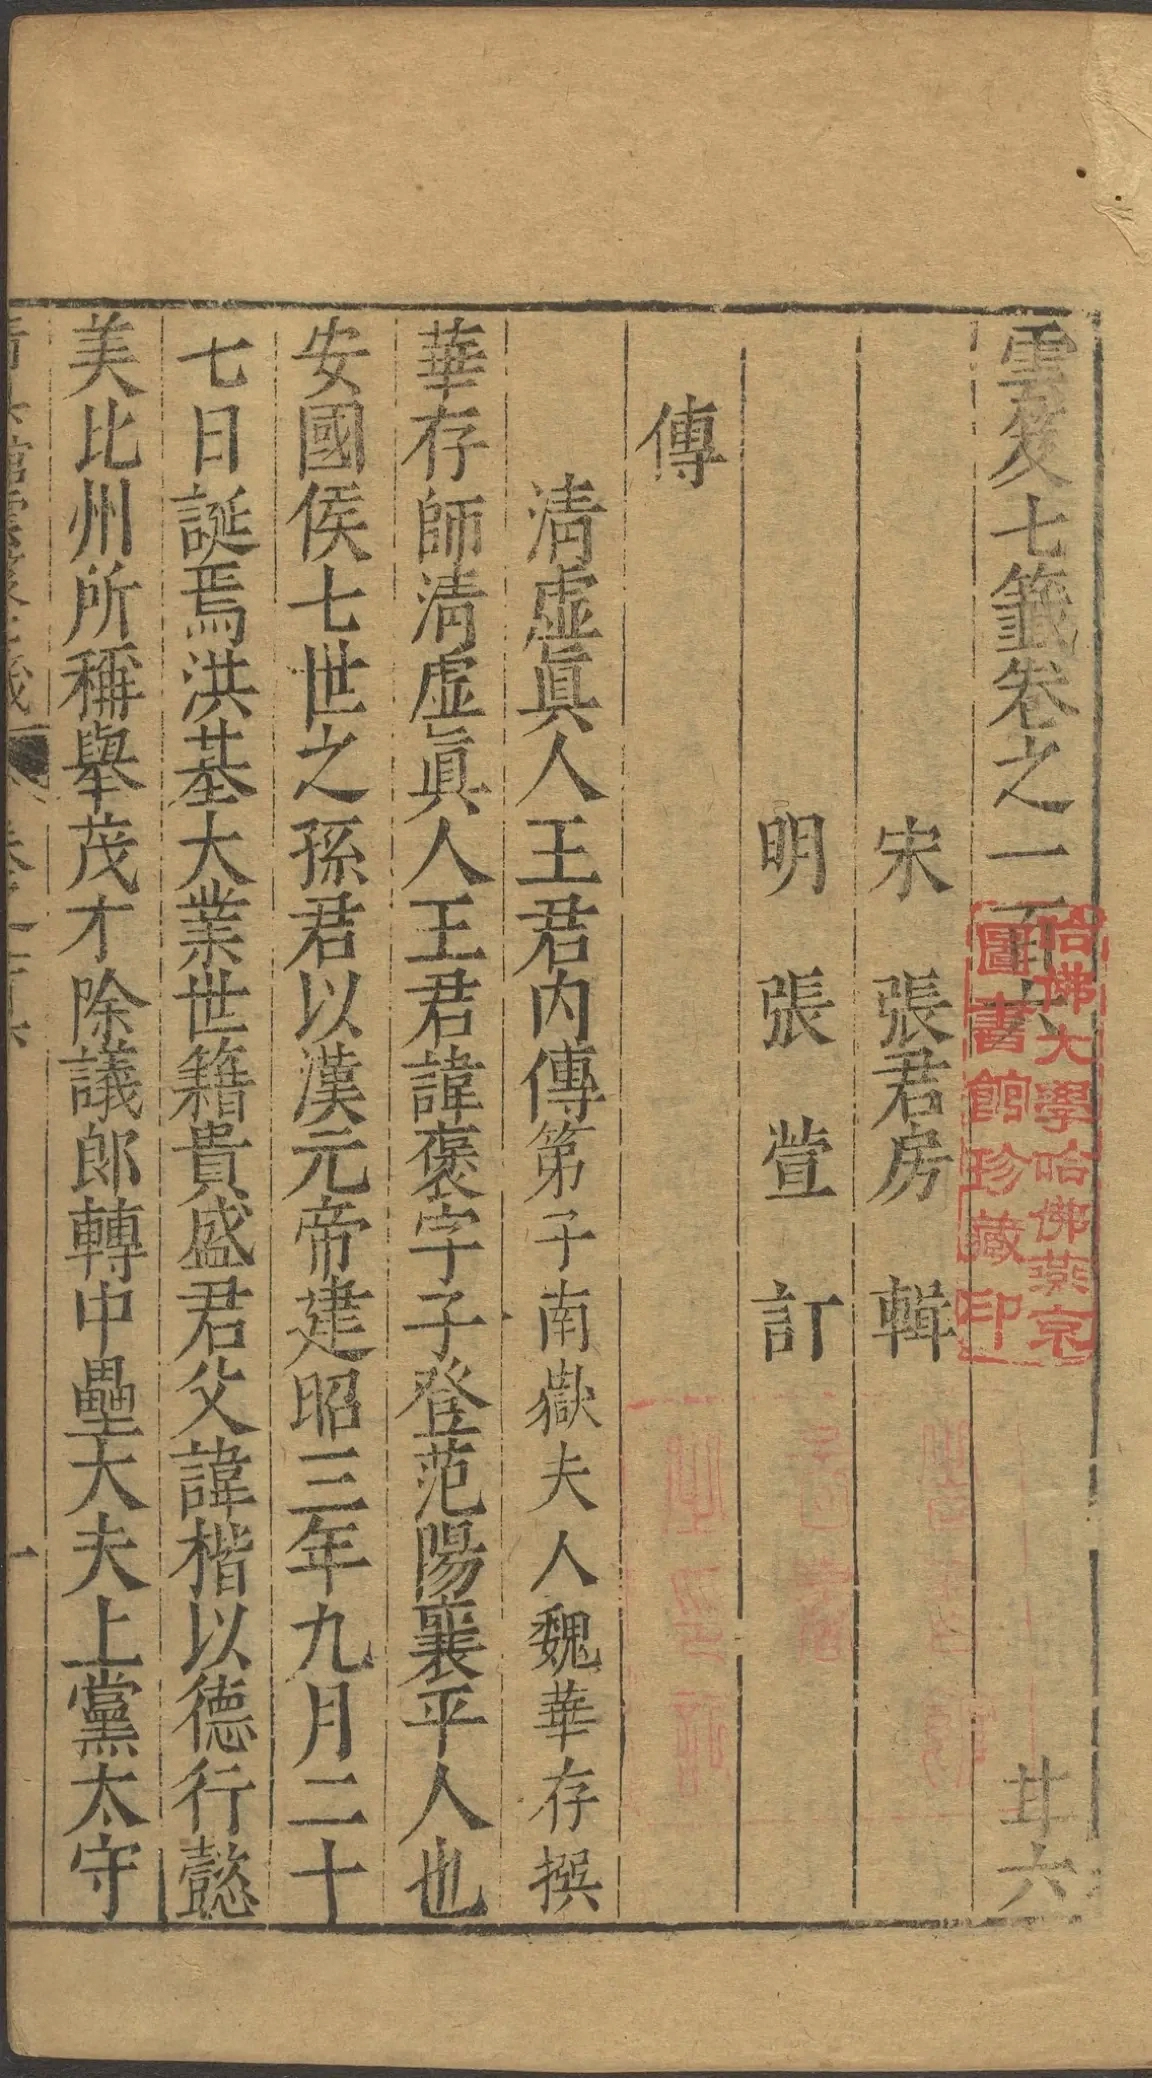 雲笈七籤卷之一百六 廿六
宋 張君房 輯
明 張萱 訂
傳
清虛眞人王君內傳 第子南嶽夫人魏華存撰
華存師清虛眞人王君諱褒字子登范陽襄平人也
安國侯七世之孫君以漢元帝建昭三年九月二十
七日誕焉洪基大業世籍貴盛君父諱楷以德行懿
美比州所稱舉茂才除議郎轉中壘大夫上黨太守
哈佛大學哈佛燕京
圖書館珍藏印